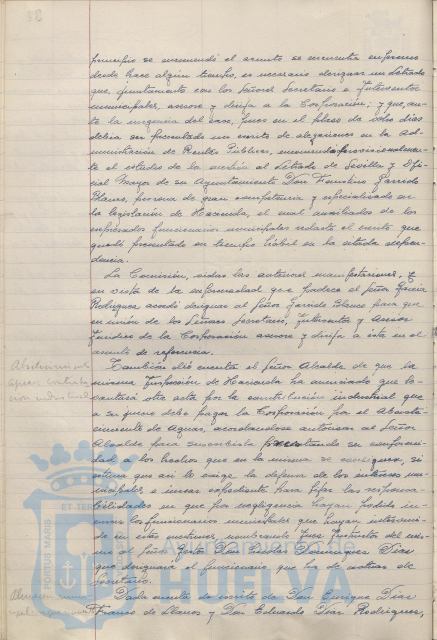 principio se encomendó el asunto se encuentra enfermo
desde hace algún tiempo, es necesario designar un letrado
que, juntamente con los Señores Secretario e Interventor
municipales, asesore y dirija a la Corporación; y que, an-
te la urgencia del caso, pues en el plazo de ocho dias
debia ser presentado un escrito de alegaciones en la Ad-
ministración de Rentas Públicas, encomendó provisionalmen-
te el estudio de la cuestión al Letrado de Sevilla y Ofi-
cial Mayor de su Ayuntamiento Don Faustino Garrido
Blanco, persona de gran competencia y especializado en
la legislación de Hacienda, el cual auxiliado de los
expresados funcionarios municipales redactó el escrito que
quedó presentado en tiempo hábil en la citada depen-
dencia.
La Comisión, oidas las anteriores manifestaciones, y
en vista de la enfermedad que padece el Señor Garcia
Rodriguez acordó designar al Señor Garrido Blanco para que
en unión de los Señores Secretario, Interventor y Asesor
Juridico de la Corporación asesore y dirija a ésta en el
asunto de referencia.
Tambien dió cuenta el Señor Alcalde de que la
misma Inspección de Hacienda ha anunciado que le-
vantará otra acta por la contribución industrial que
a su juicio debe pagar la Corporación por el Abaste-
cimiento de Aguas, acordandose autorizar al Señor
Alcalde para suscribirla prestando su conformi-
dad a los hechos que en la misma se consignen, si
estima que asi lo exige la defensa de los intereses mu-
nicipales, e incoar expediente para fijar las responsa-
bilidades en que por negligencia hayan podido in-
currir los funcionarios municipales que hayan interveni-
do en estas cuestiones, nombrando Juez Instructor del mis-
mo al Señor Gestor Don Nicolás Dominguez Dias
que designará el funcionario que ha de actuar de
Secretario.
Dada cuenta de escrito de Don Enrique Diaz
Franco de Llanos y Don Eduardo Diaz Rodriguez,
Abastecimiento
aguas contribu
ción industrial
PORTUS MARIS
ET TER
HUELVA